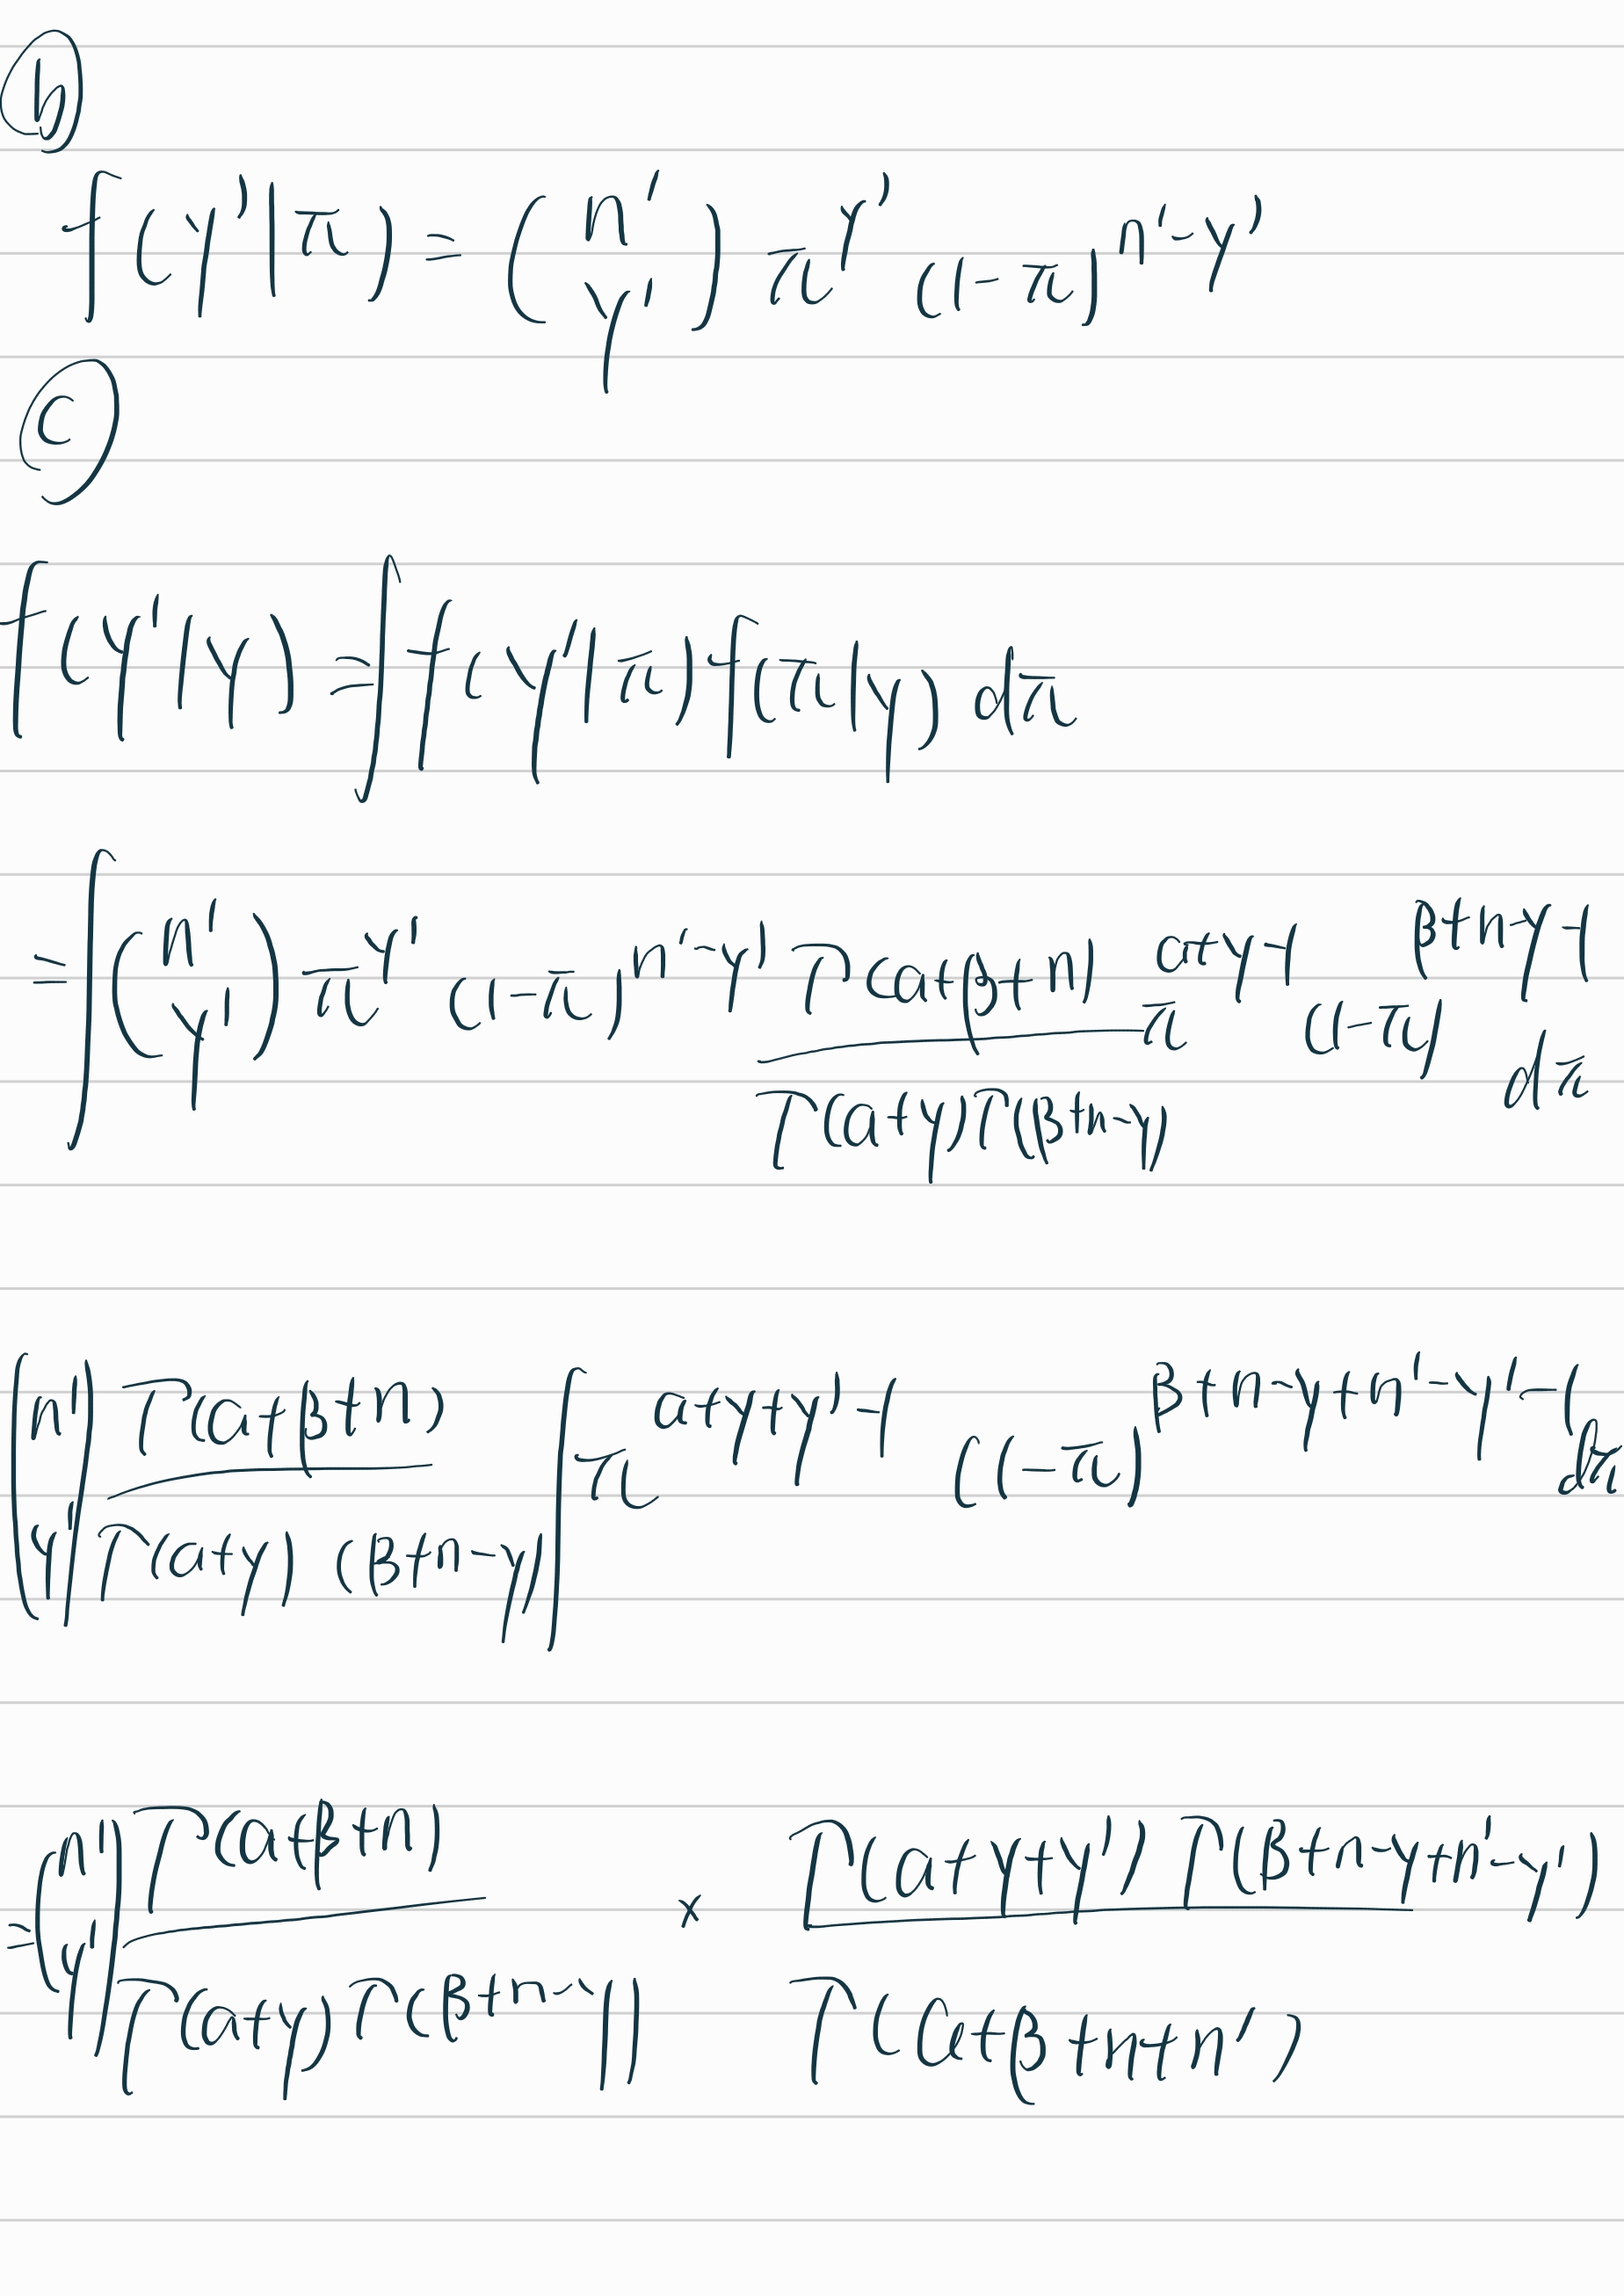 b
f(y'|π) = (n' y') π^y' (1-π)^n'-y'
c
f(y'|y) = ∫ f(y'|π) f(π|y) dπ
= ∫ (n' y') π^y' (1-π)^n'-y' Γ(α+β+n) / Γ(α+y)Γ(β+n-y) π^α+y-1 (1-π)^β+n-y-1 dπ
(n' y') Γ(α+β+n) / Γ(α+y) (β+n-y) ∫ π^α+y+y'-1 (1-π)^β+n-y+n'-y'-1 dπ
= (n' y') Γ(α+β+n) / Γ(α+y)Γ(β+n-y) × Γ(α+y+y') Γ(β+n-y+n'-y') / Γ(α+β+n+n')